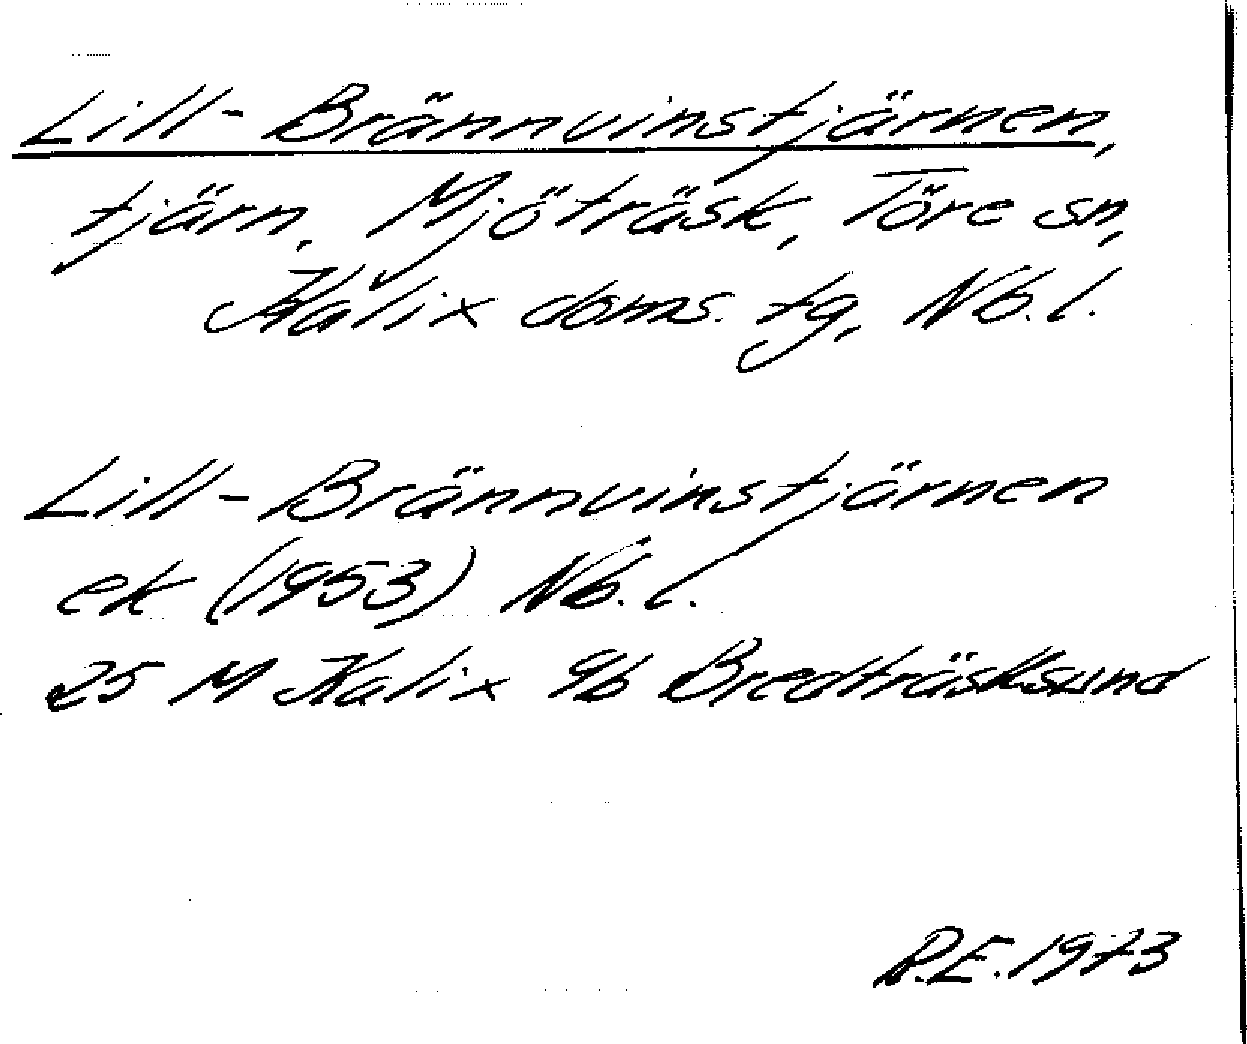 Lill-Brännvinstjärnen,
tjärn, Mjöträsk, Töre sn,
Kalix doms. tg, Nb. l.
Lill-Brännvinstjärnen
ek (1953) Nb. l.
25 M Kalix 9b Bredträsksund
R.E. 1973